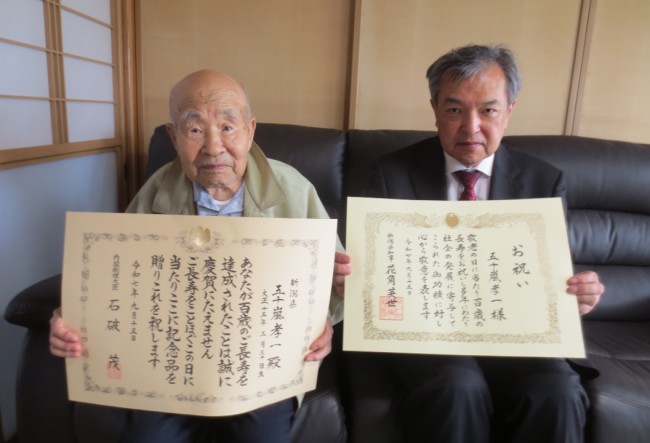 新潟県
五十嵐孝一殿
大正十五年三月三十日生
あなたが百歳のご長寿を
達成されたことは誠に
慶賀にたえません
ご長寿をことほぐこの日に
当たりここに記念品を
贈りこれを祝します
令和七年九月十五日
内閣総理大臣 石破茂
お祝い
五十嵐孝一様
敬老の日に当たり百歳の
長寿をお祝いし多年にわたり
社会の発展に寄与して
こられた御功績に対し
心から敬意を表します
令和七年九月十五日
新潟県知事 花角英世